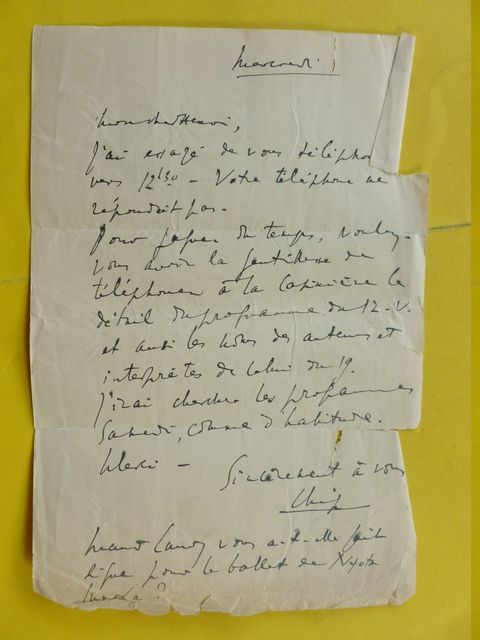 Mercredi
Mon cher Henri,
J'ai essayé de vous téléphoner
vers 12h30 - Votre téléphone ne
répondait pas.
Pour gagner du temps, voulez-
vous avoir la gentillesse de
téléphoner à la le
détail du programme du 12-V.
et aussi les noms des auteurs et
interprètes de celui du 19.
J'irai chercher les programmes
Samedi, comme d'habitude.
Merci -
Sincèrement à vous
vous a-t-elle fait
signe pour le ballet de Nyota
Inyoka ?